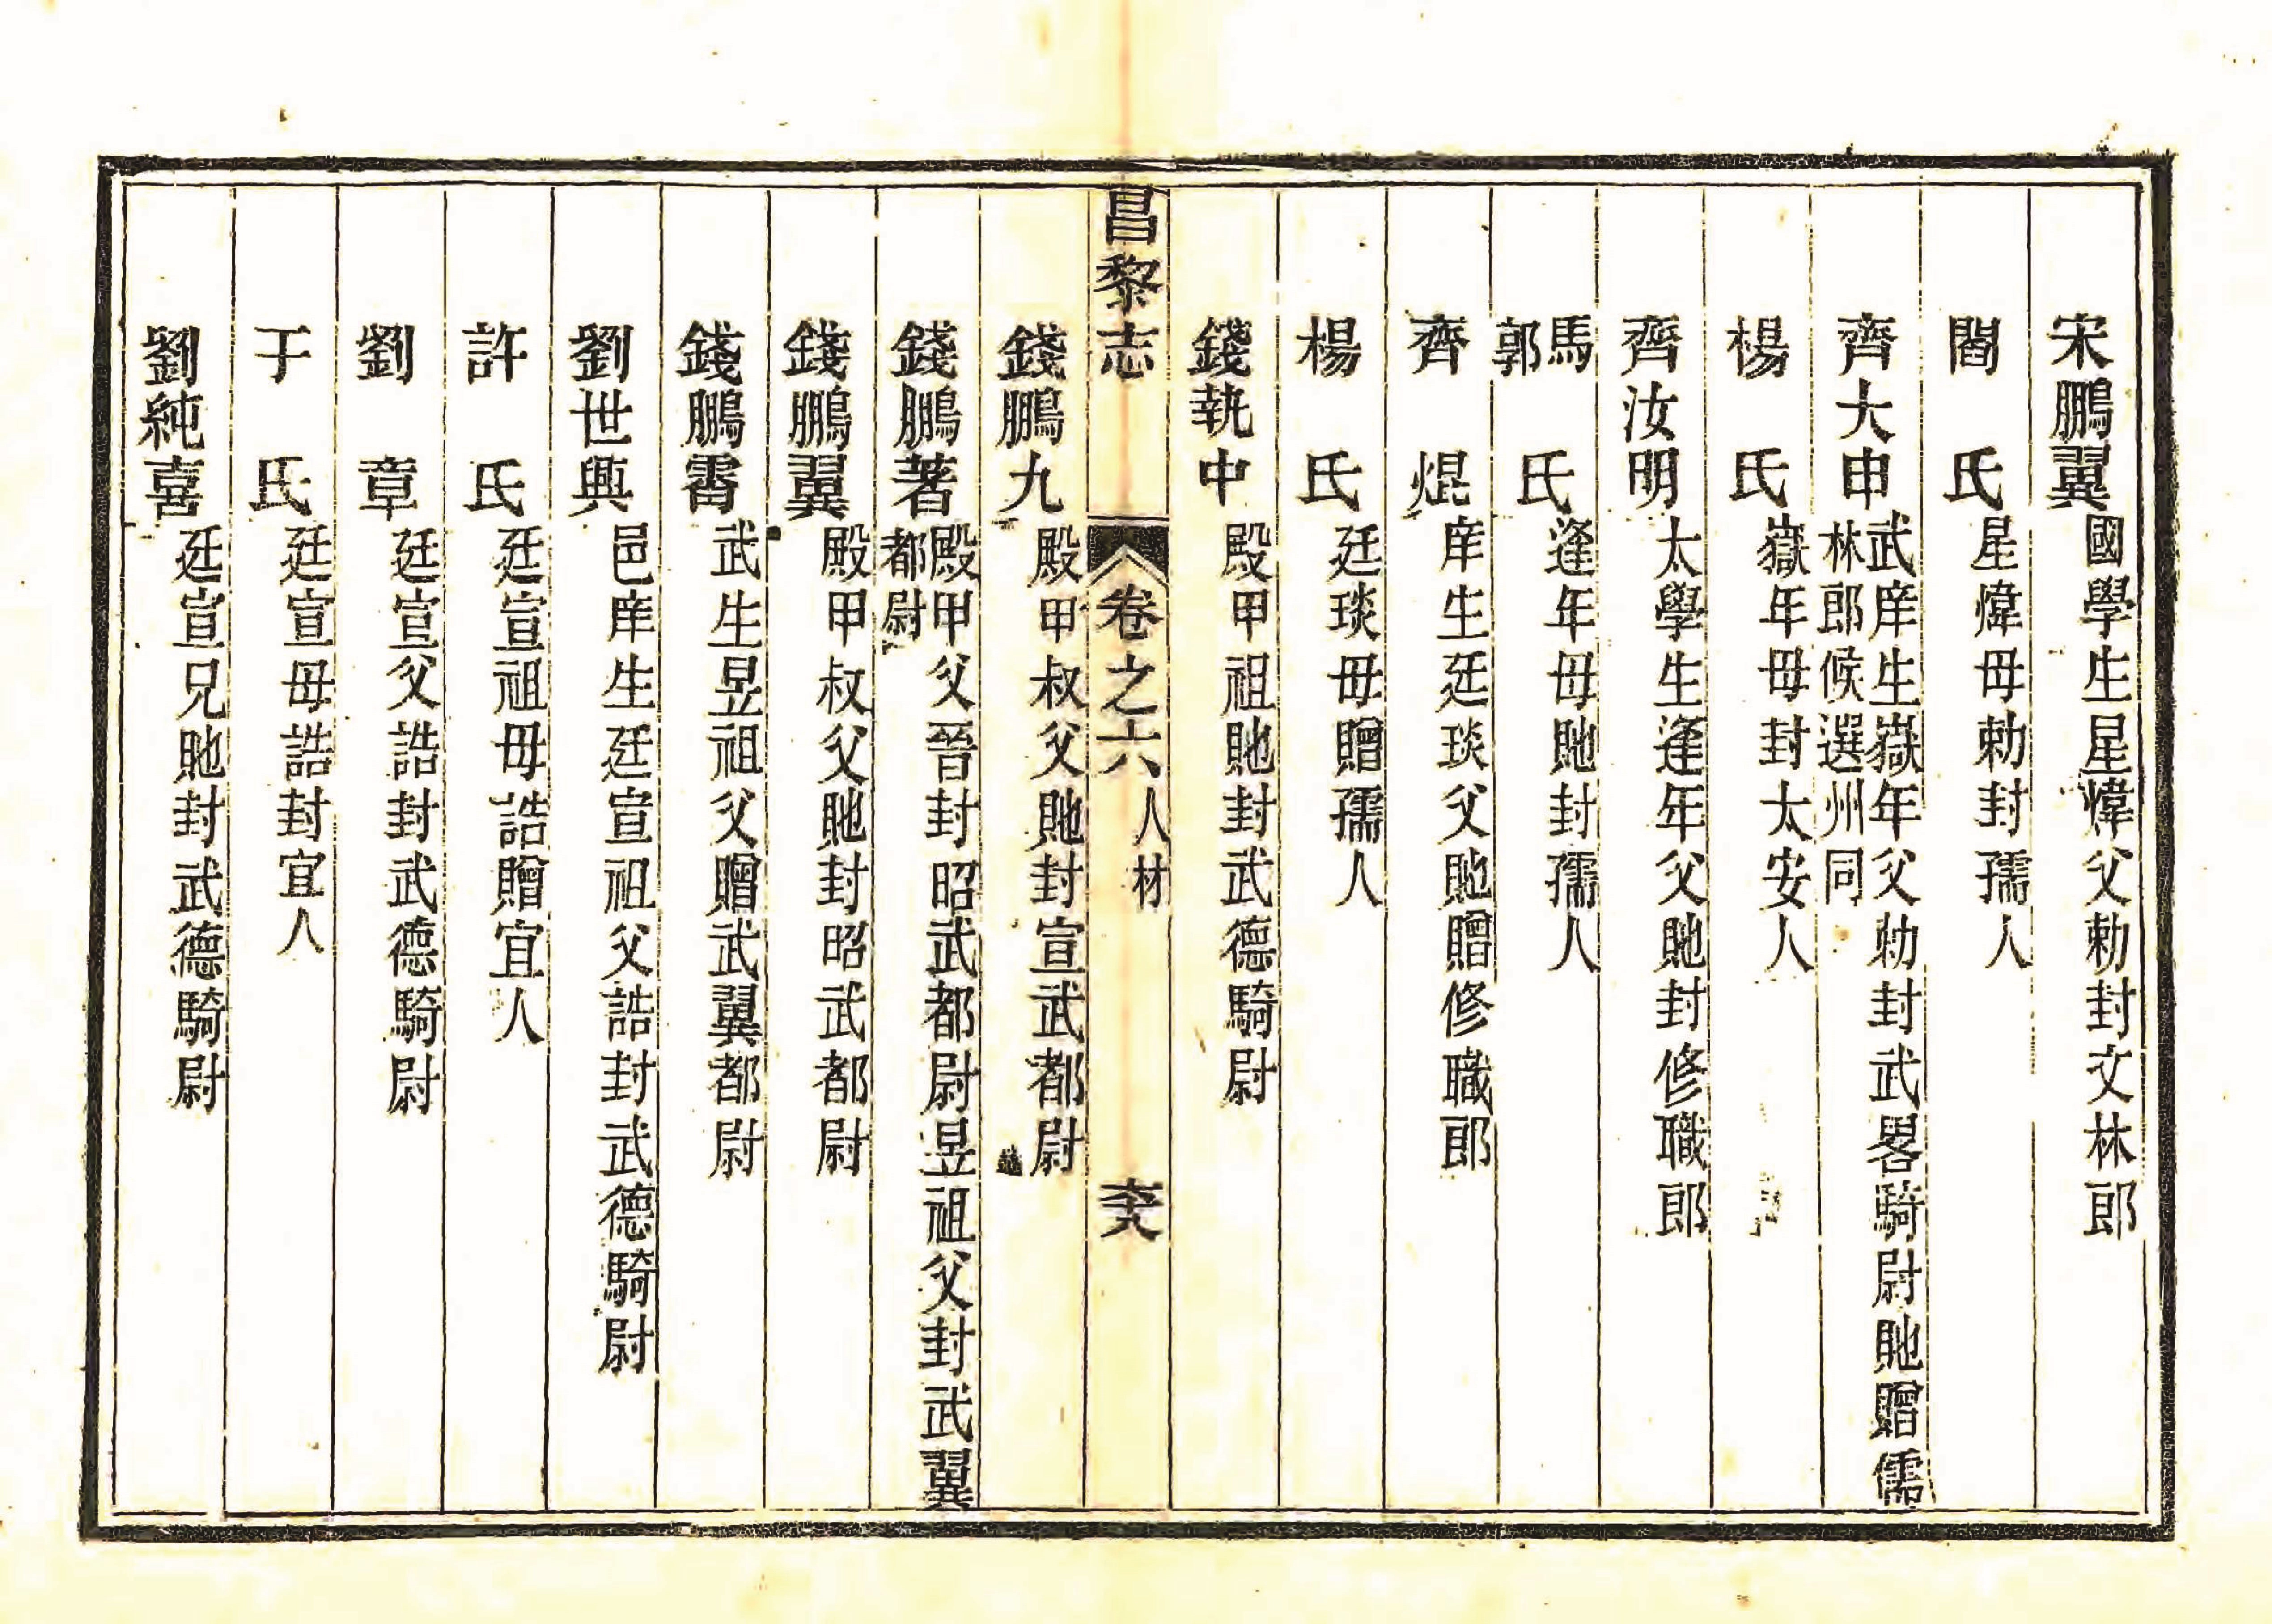 宋鵬翼國學生星煒父勅封文林郎
閻氏星煒母勅封孺人
齊大申武庠生嶽年父勅封武畧騎尉貤贈儒
林郎候選州同
楊氏嶽年母封太安人
齊汝明太學生逢年父貤封修職郎
馬
郭
氏逢年母貤封孺人
齊焜庠生廷琰父貤贈修職郎
楊氏廷琰母贈孺人
錢執中殿甲祖貤封武德騎尉
昌黎志
卷之六人材
錢鵬九殿甲叔父貤封宣武都尉
錢鵬著殿甲父晉封昭武都尉昱祖父封武翼
都尉
錢鵬翼殿甲叔父貤封昭武都尉
錢鵬霄武生昱祖父贈武翼都尉
劉世興邑庠生廷宣祖父誥封武德騎尉
許氏廷宣祖母誥贈宜人
劉章廷宣父誥封武德騎尉
于氏廷宣母誥封宜人
劉純喜廷宣兄貤封武德騎尉